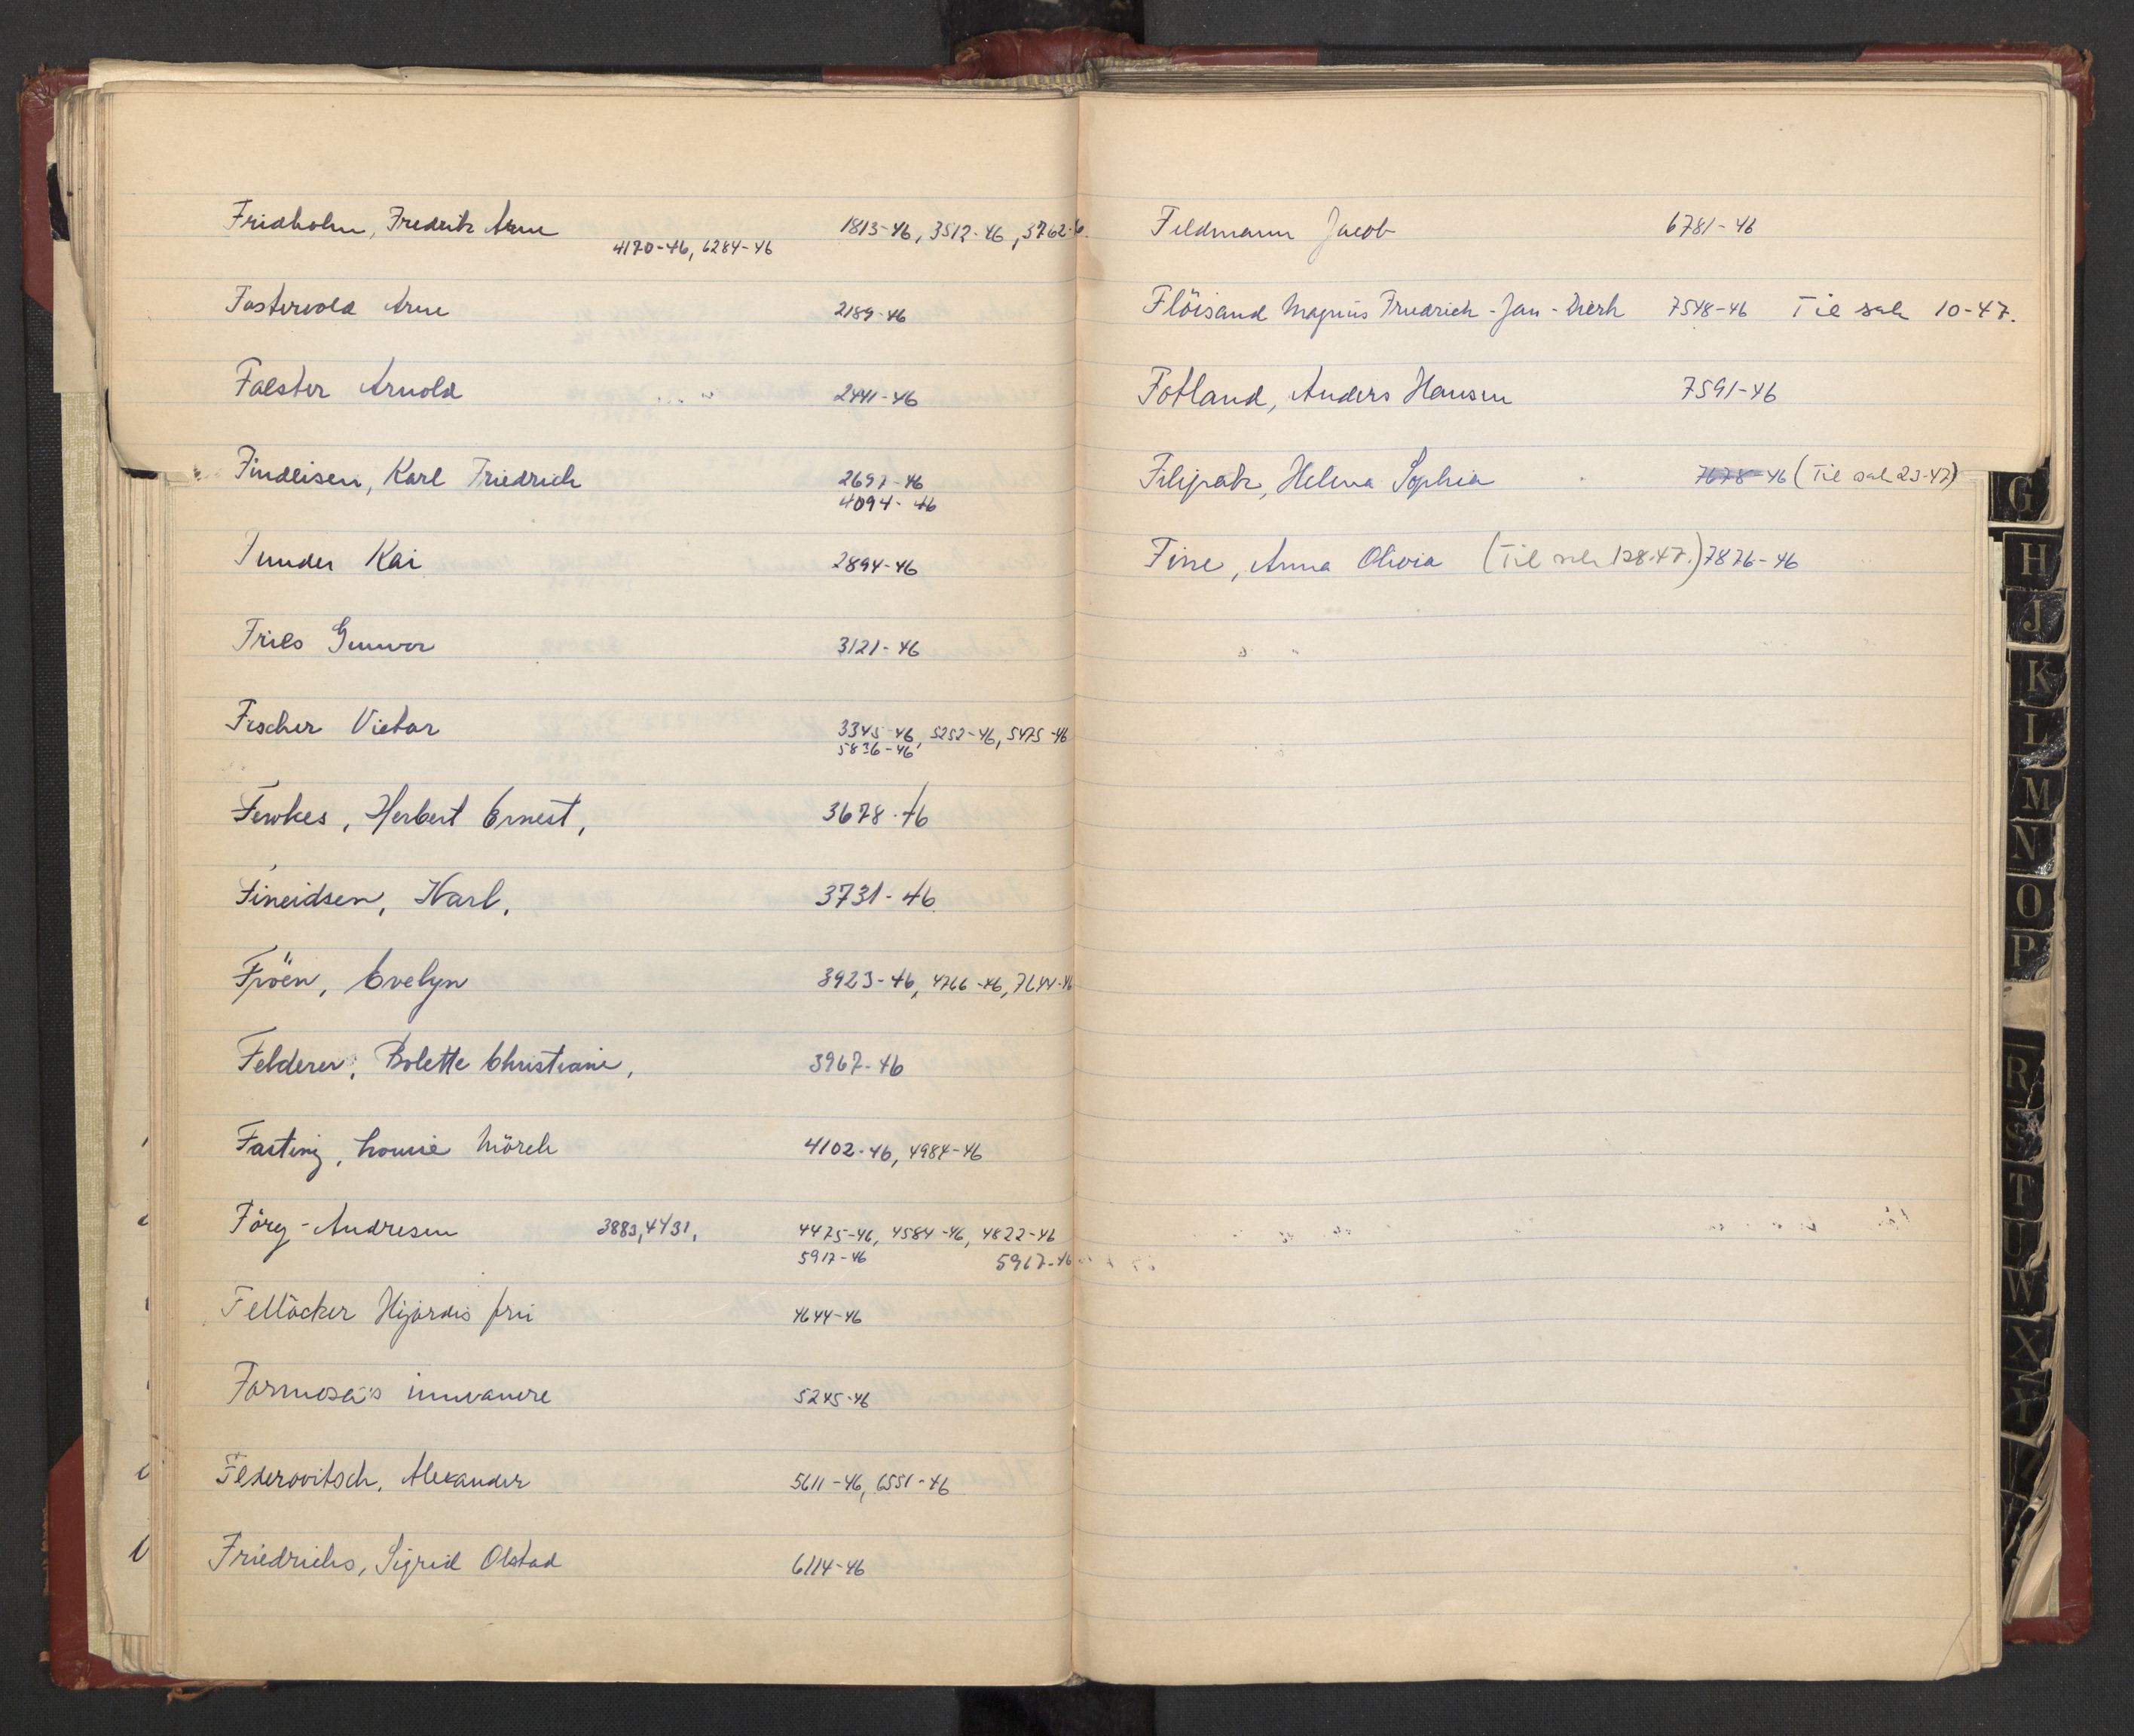 Fridholm, Fredrik Arne 1813-46, 3512-46, 3762-6.
4170-46, 6284-46
Fostervold Arne 2189-46
Falster Arnold 2441-46
Findeisen, Karl Friedrich 2697-46
4094-46
Funder Kai 2894-46
Fries Gunvor 3121-46
Fischer Victor 3345-46, 5252-46, 5475-46
5836-46
Fewkes, Herbert Ernest, 3678-46
Fineidsen, Karl, 3731-46
Fröen, Evelyn 3923-46, 4766-46, 7644-46
Felderer, Bolette Christiane, 3967-46
Fasting, Louise Mörch 4102-46, 4984-46
Förg-Andresen 3883, 4431, 4475-46, 4584-46, 4822-46
5917-46 5967-46
Fellöcker Hjördis fru 4644-46
Formosa's innvanere 5245-46
Federovitsch, Alexander 5611-46, 6551-46
Friedrichs, Sigrid Olstad 6114-46
Feldmann Jacob 6781-46
Flöisand Magnus Friedrich-Jan- 7548-46 Til sak 10-47.
Fotland, Anders Hansen 7591-46
Filipak, Helena Sophia 7678-46 (Til sak 23-47)
Fine, Anna Olivia (Til sak 128-47.) 7876-46
G
H
J
K
L
M
N
O
P
R
S
T
U
W
X
Y